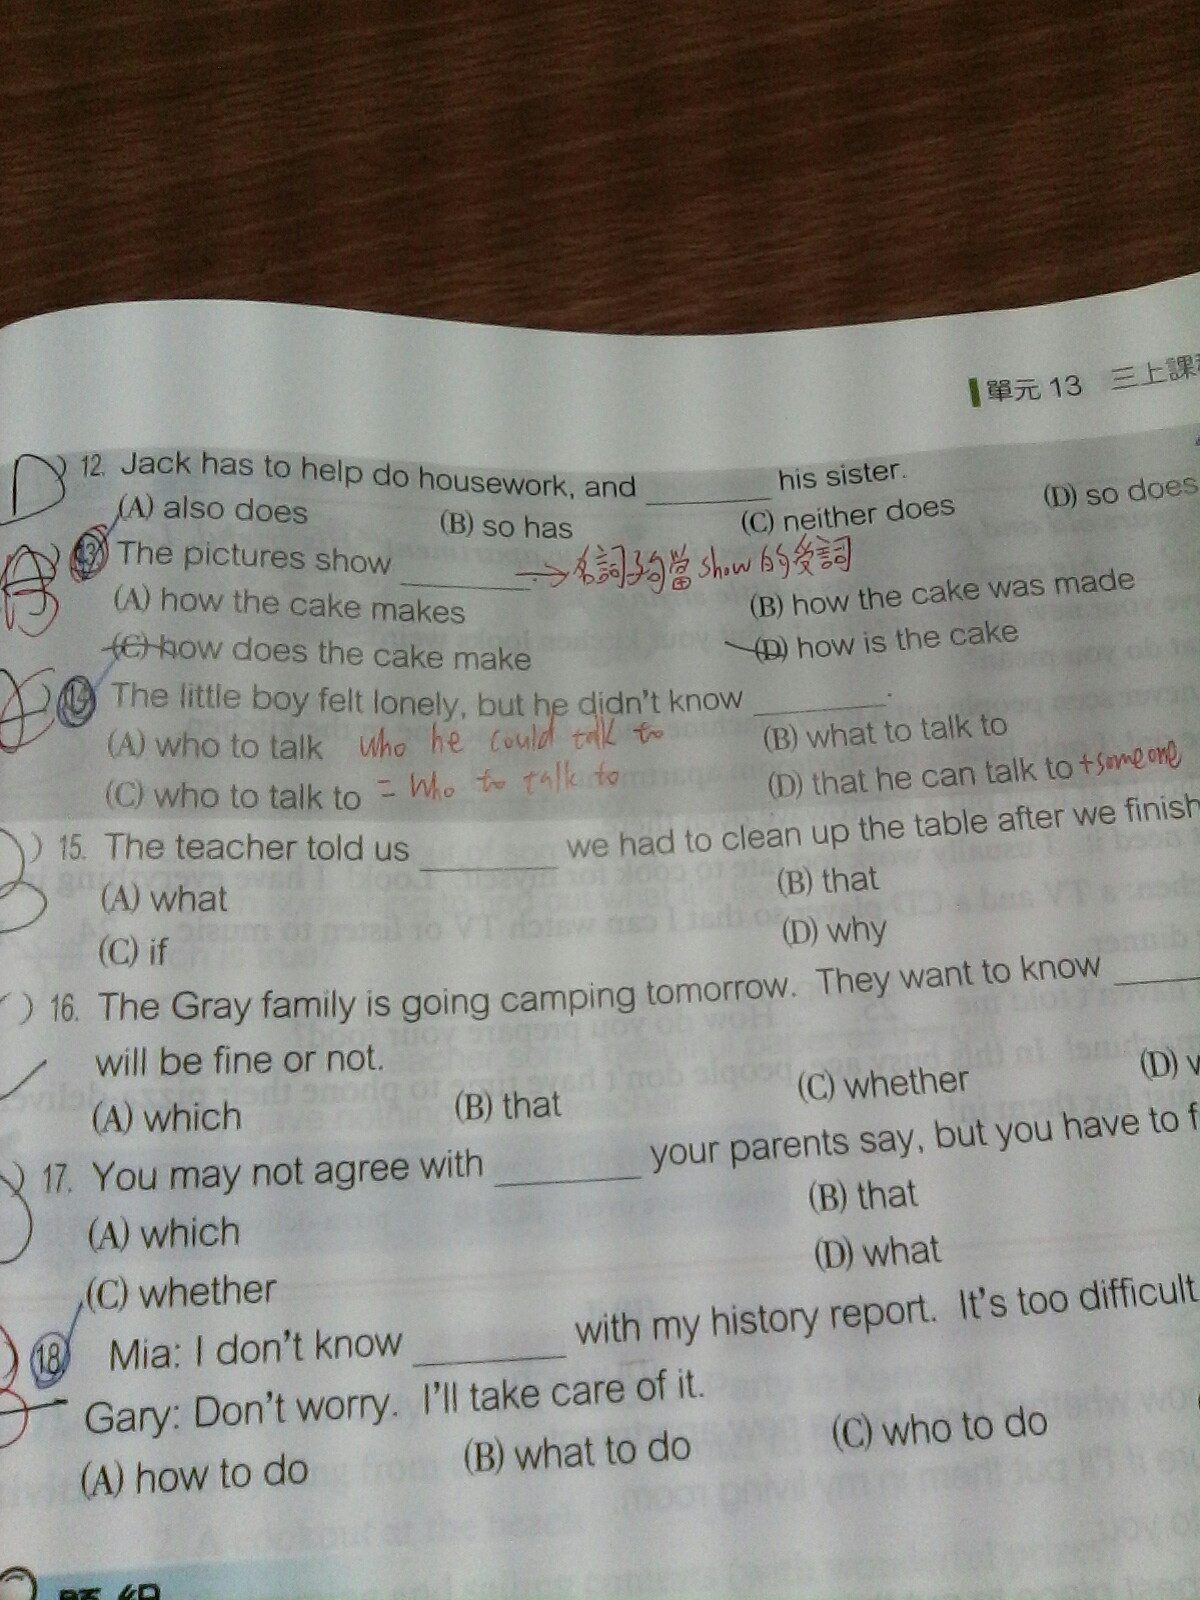 單元 13 三上課
D ) 12. Jack has to help do housework, and ________ his sister.
(A) also does (B) so has (C) neither does (D) so does
) 13. The pictures show ________ → 名詞子句當 show 的受詞
(A) how the cake makes (B) how the cake was made
(C) how does the cake make (D) how is the cake
) 14. The little boy felt lonely, but he didn't know ________.
(A) who to talk who he could talk to (B) what to talk to
(C) who to talk to = who to talk to (D) that he can talk to + someone
) 15. The teacher told us ________ we had to clean up the table after we finish
(A) what (B) that
(C) if (D) why
) 16. The Gray family is going camping tomorrow. They want to know ____
will be fine or not.
(A) which (B) that (C) whether (D)
) 17. You may not agree with ________ your parents say, but you have to
(A) which (B) that
(C) whether (D) what
18. Mia: I don't know ________ with my history report. It's too difficult
Gary: Don't worry. I'll take care of it.
(A) how to do (B) what to do (C) who to do